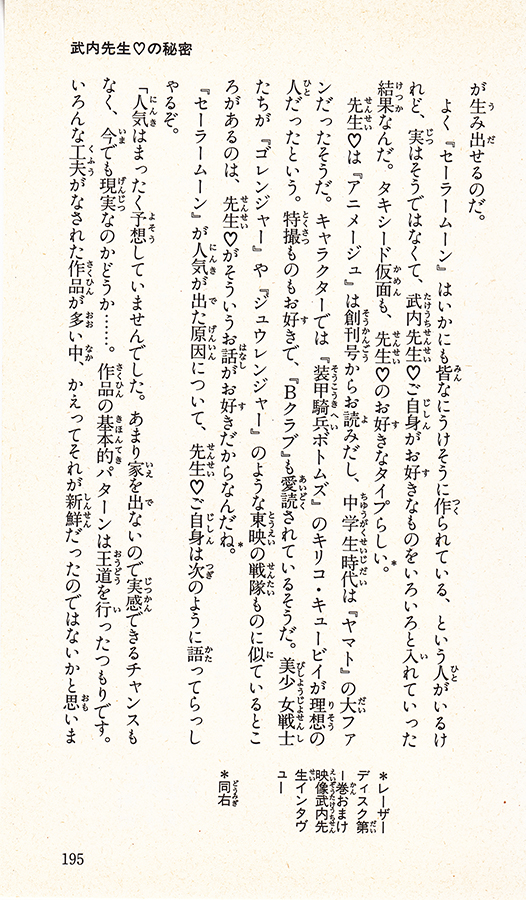 武内先生♡の秘密
が生み出せるのだ。
よく『セーラームーン』はいかにも皆なにうけそうに作られている、という人がいるけ
れど、実はそうではなくて、武内先生♡ご自身がお好きなものをいろいろと入れていった
結果なんだ。タキシード仮面も、先生♡のお好きなタイプらしい。*
先生♡は『アニメージュ』は創刊号からお読みだし、中学生時代は『ヤマト』の大ファ
ンだったそうだ。キャラクターでは『装甲騎兵ボトムズ』のキリコ・キュービイが理想の
人だったという。特撮ものもお好きで、『Bクラブ』も愛読されているそうだ。美少女戦士
たちが『ゴレンジャー』や『ジュウレンジャー』のような東映の戦隊ものに似ているとこ
ろがあるのは、先生♡がそういうお話がお好きだからなんだね。*
『セーラームーン』が人気が出た原因について、先生♡ご自身は次のように語ってらっし
ゃるぞ。
「人気はまったく予想していませんでした。あまり家を出ないので実感できるチャンスも
なく、今でも現実なのかどうか……。作品の基本的パターンは王道を行ったつもりです。
いろんな工夫がなされた作品が多い中、かえってそれが新鮮だったのではないかと思いま
*レーザー
ディスク第
一巻おまけ
映像武内先
生インタヴ
ュー
*同右
195